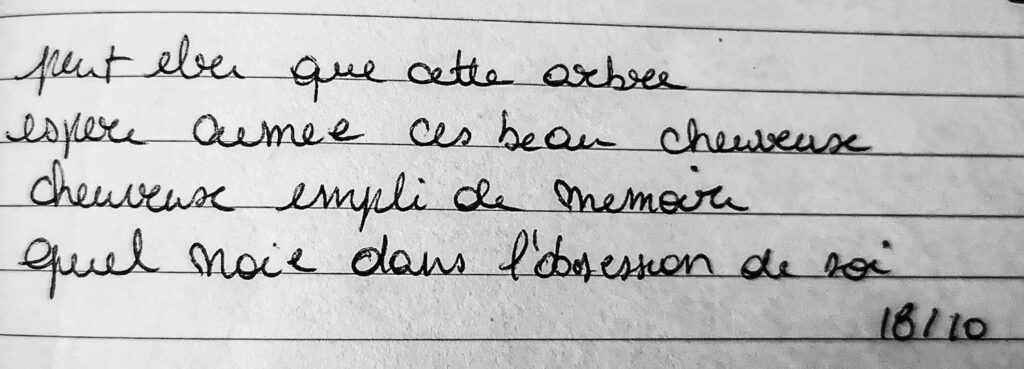 peut etre que cette arbre
espere aumee ces beau cheuveux
cheuveux empli de memoire
quel noie dans l'obsession de soi
18/10